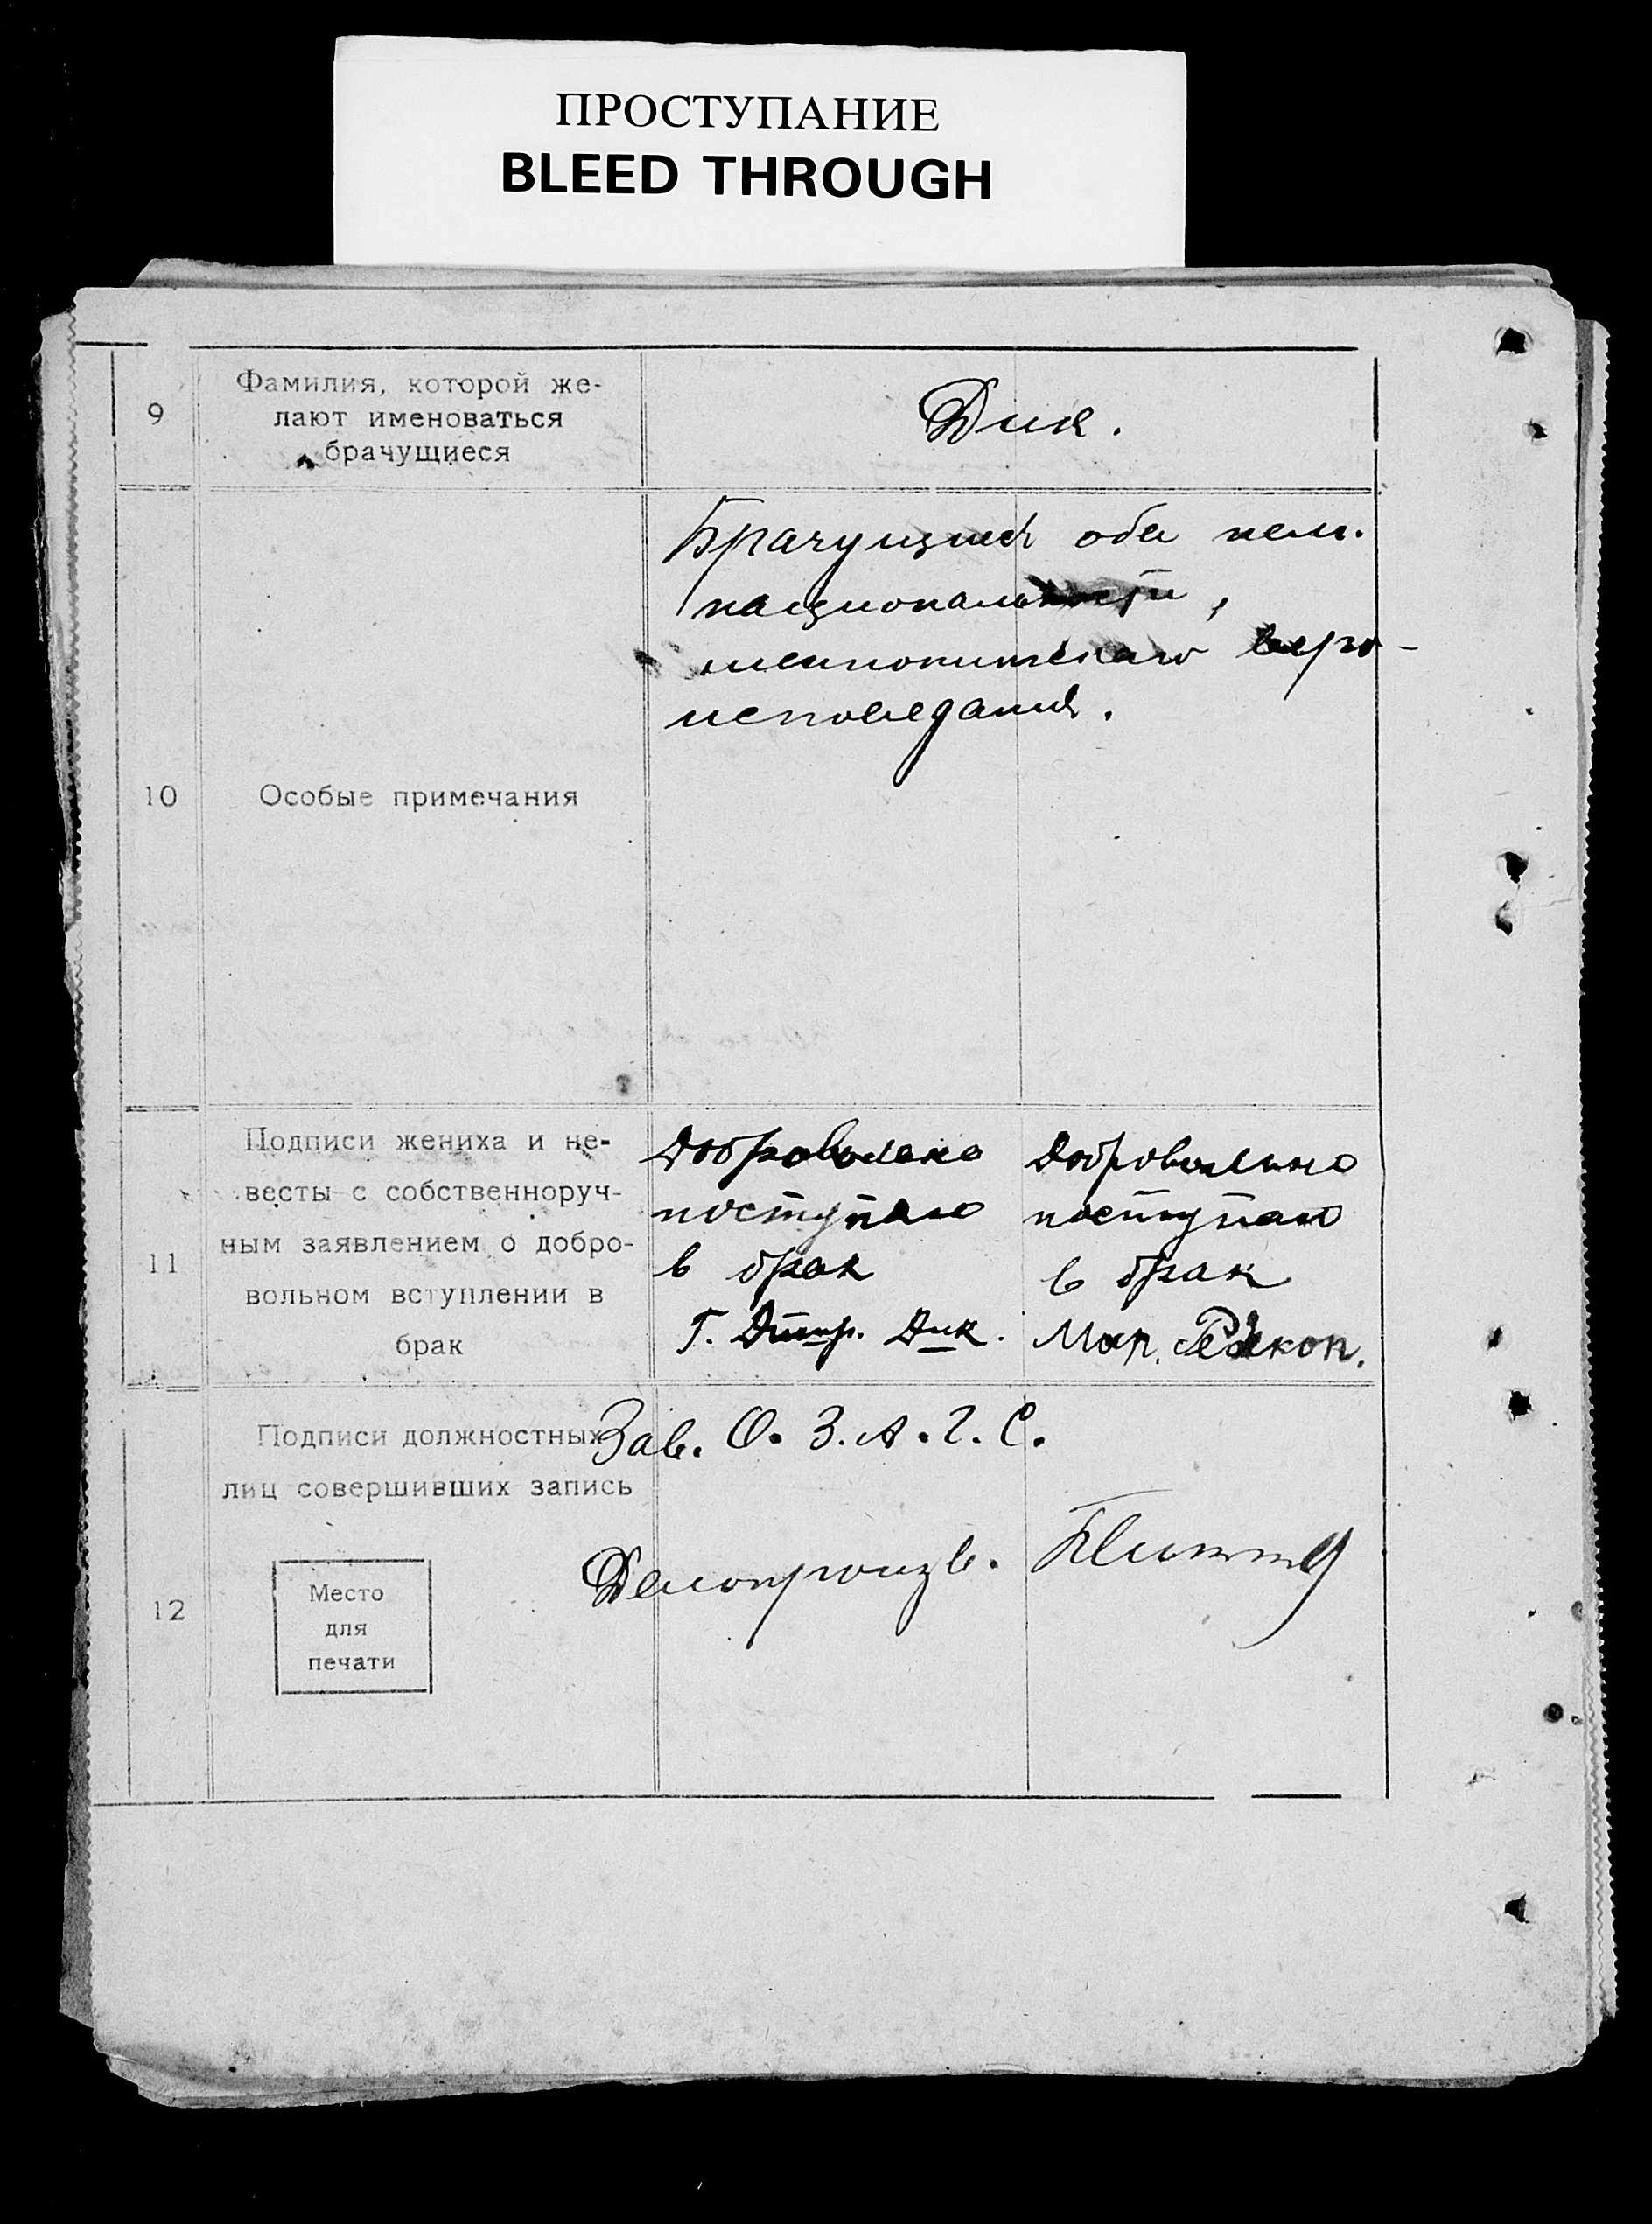 ПРОСТУПАНИЕ
BLEED THROUGH
9
Фамилия, которой же-
лают именоваться
брачущиеся
Дик.
10
Особые примечания
Брачущиеся оба нем.
национальности,
меннонитского веро-
исповедания.
11
Подписи жениха и не-
весты с собственноруч-
ным заявлением о добро-
вольном вступлении в
брак
Добровольно
поступаю
в брак
Г. Дик.
Добровольно
поступаю
в брак
Мар. Редекоп.
12
Подписи должностных
лиц совершивших запись
Место
для
печати
Зав. О. З. А. Г. С.
Делопроизв.